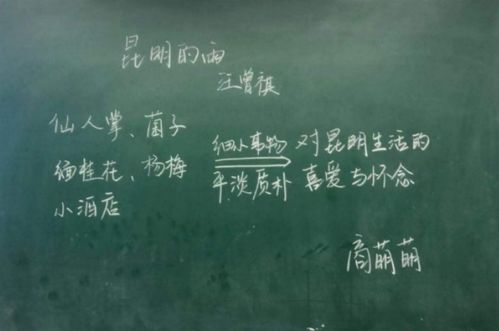 昆明的雨
汪曾祺
仙人掌、菌子
缅桂花、杨梅
小酒店
细小事物
平淡质朴
对昆明生活的
喜爱与怀念
商萌萌